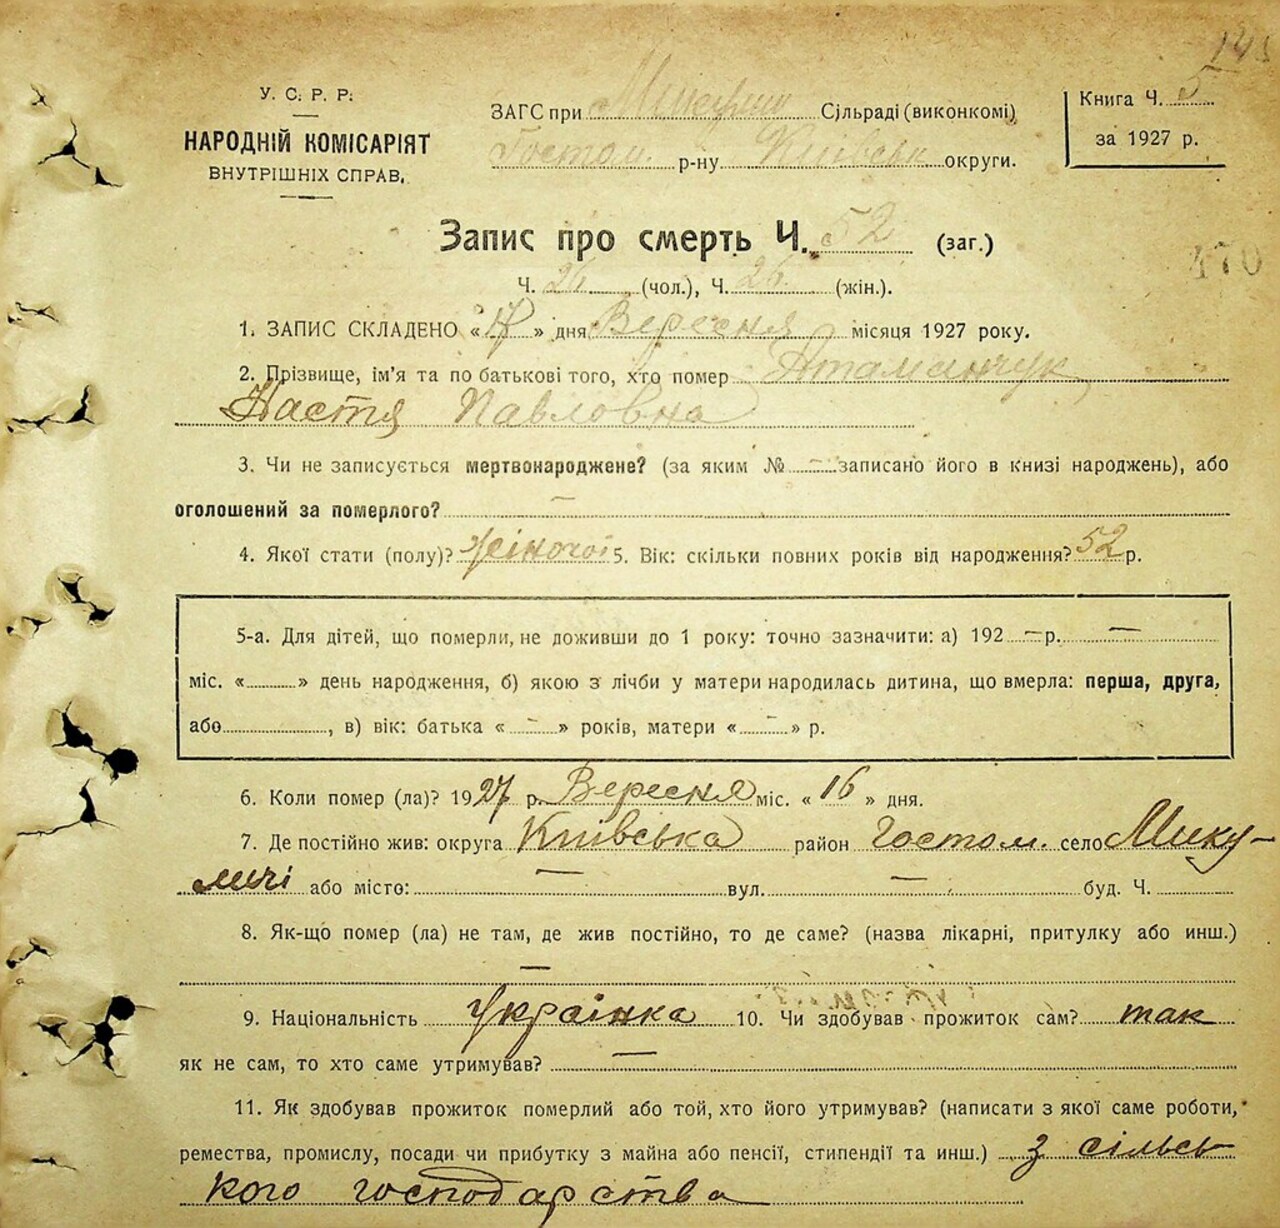 145
У. С. Р. Р.
НАРОДНІЙ КОМІСАРІЯТ
ВНУТРІШНІХ СПРАВ.
ЗАГС при Микулич Сільраді (виконкомі)
Гостом. р-ну Київськ округи.
Книга Ч. 5
за 1927 р.
Запис про смерть Ч. 52 (заг.)
470
Ч. 26 (чол.), Ч. 26 (жін.).
1. ЗАПИС СКЛАДЕНО «17» дня Вересня місяця 1927 року.
2. Прізвище, ім'я та по батькові того, хто помер Атаманчук
Настя Павловна
3. Чи не записується мертвонароджене? (за яким № – записано його в книзі народжень), або
оголошений за померлого? –
4. Якої стати (полу)? Жіночої 5. Вік: скільки повних років від народження? 52 р.
5-а. Для дітей, що померли, не доживши до 1 року: точно зазначити: а) 192 – р. –
міс. « » день народження, б) якою з лічби у матери народилась дитина, що вмерла: перша, друга,
або , в) вік: батька « – » років, матери « – » р.
6. Коли помер (ла)? 1927 р. Вересня міс. « 16 » дня.
7. Де постійно жив: округа Київська район Гостом. село Мику-
личі або місто: – вул. – буд. Ч.
8. Як-що помер (ла) не там, де жив постійно, то де саме? (назва лікарні, притулку або инш.)
–
9. Національність Українка 10. Чи здобував прожиток сам? так
як не сам, то хто саме утримував? –
11. Як здобував прожиток померлий або той, хто його утримував? (написати з якої саме роботи,
ремества, промислу, посади чи прибутку з майна або пенсії, стипендії та инш.) з сільсь
кого господарства